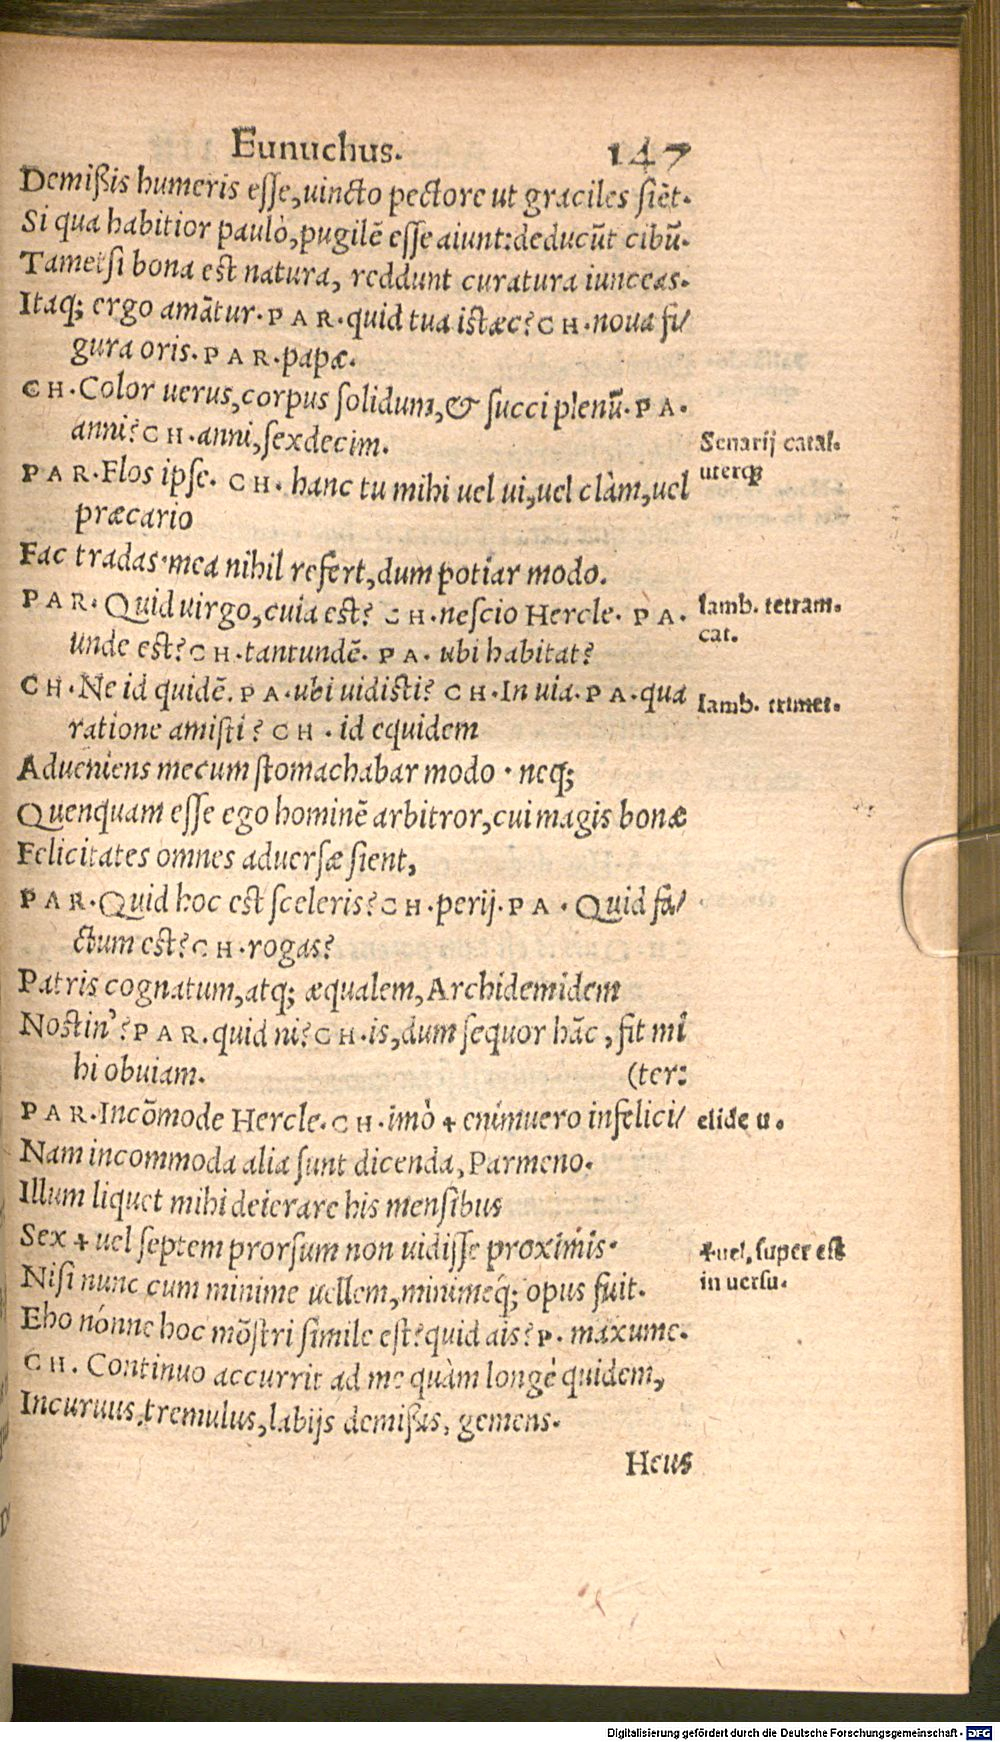 Eunuchus. 147
Demißis humeris esse, uincto pectore ut graciles siẽt.
Si qua habitior paulò, pugilẽ esse aiunt: deducũt cibũ.
Tametsi bona est natura, reddunt curatura iunceas.
Itaq; ergo amãtur. PAR. quid tua istæc? CH. noua fi/
gura oris. PAR. papæ.
CH. Color uerus, corpus solidum, & succi plenũ. PA.
anni? CH. anni, sexdecim.
Senarij catal.
uterq;
PAR. Flos ipse. CH. hanc tu mihi uel ui, uel clàm, uel
præcario
Fac tradas. mea nihil refert, dum potiar modo.
PAR. Quid uirgo, cuia est? CH. nescio Hercle. PA.
unde est? CH. tantundẽ. PA. ubi habitat?
Iamb. tetram.
cat.
CH. Ne id quidẽ. PA. ubi uidisti? CH. In uia. PA. qua
ratione amisti? CH. id equidem
Iamb. trimet.
Adueniens mecum stomachabar modo. neq;
Quenquam esse ego hominẽ arbitror, cui magis bonæ
Felicitates omnes aduersæ sient,
PAR. Quid hoc est sceleris? CH. perij. PA. Quid fa/
ctum est? CH. rogas?
Patris cognatum, atq; æqualem, Archidemidem
Nostin'? PAR. quid ni? CH. is, dum sequor hãc, fit mi
hi obuiam. (ter:
PAR. Incõmode Hercle. CH. imò + enimuero infelici/
elide u.
Nam incommoda alia sunt dicenda, Parmeno.
Illum liquet mihi deierare his mensibus
Sex + uel septem prorsum non uidisse proximis.
+uel, super est
in uersu.
Nisi nunc cum minime uellem, minimeq́; opus fuit.
Eho nónne hoc mõstri simile est? quid ais? P. maxume.
CH. Continuo accurrit ad me quàm longè quidem,
Incuruus, tremulus, labijs demißis, gemens.
Heus
Digitalisierung gefördert durch die Deutsche Forschungsgemeinschaft - DFG